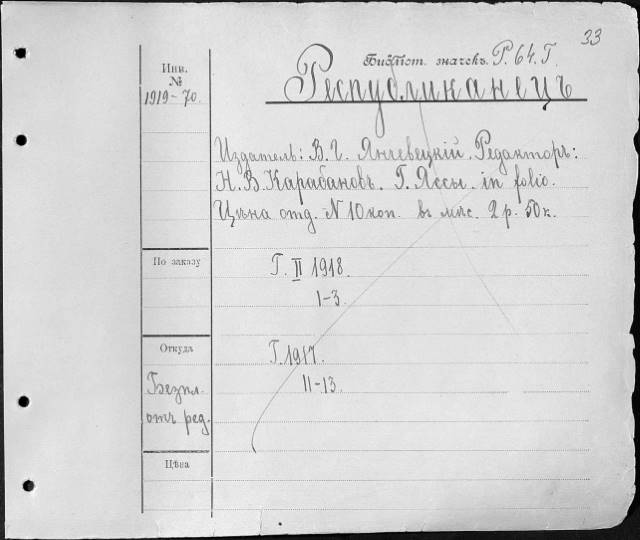 33
Библіот. значекъ. Р. 64. Г.
Инв.
№
1919-70.
Республиканецъ
Издатель: В. Г. Янчевецкій. Редакторъ:
Н. В. Карабановъ. Г. Яссы. in folio.
Цѣна отд. N 10 коп. въ мѣс. 2 р. 50 к.
По заказу
Г. II 1918.
1-3.
Откуда
Г. 1917.
11-13.
Безпл.
отъ ред.
Цѣва